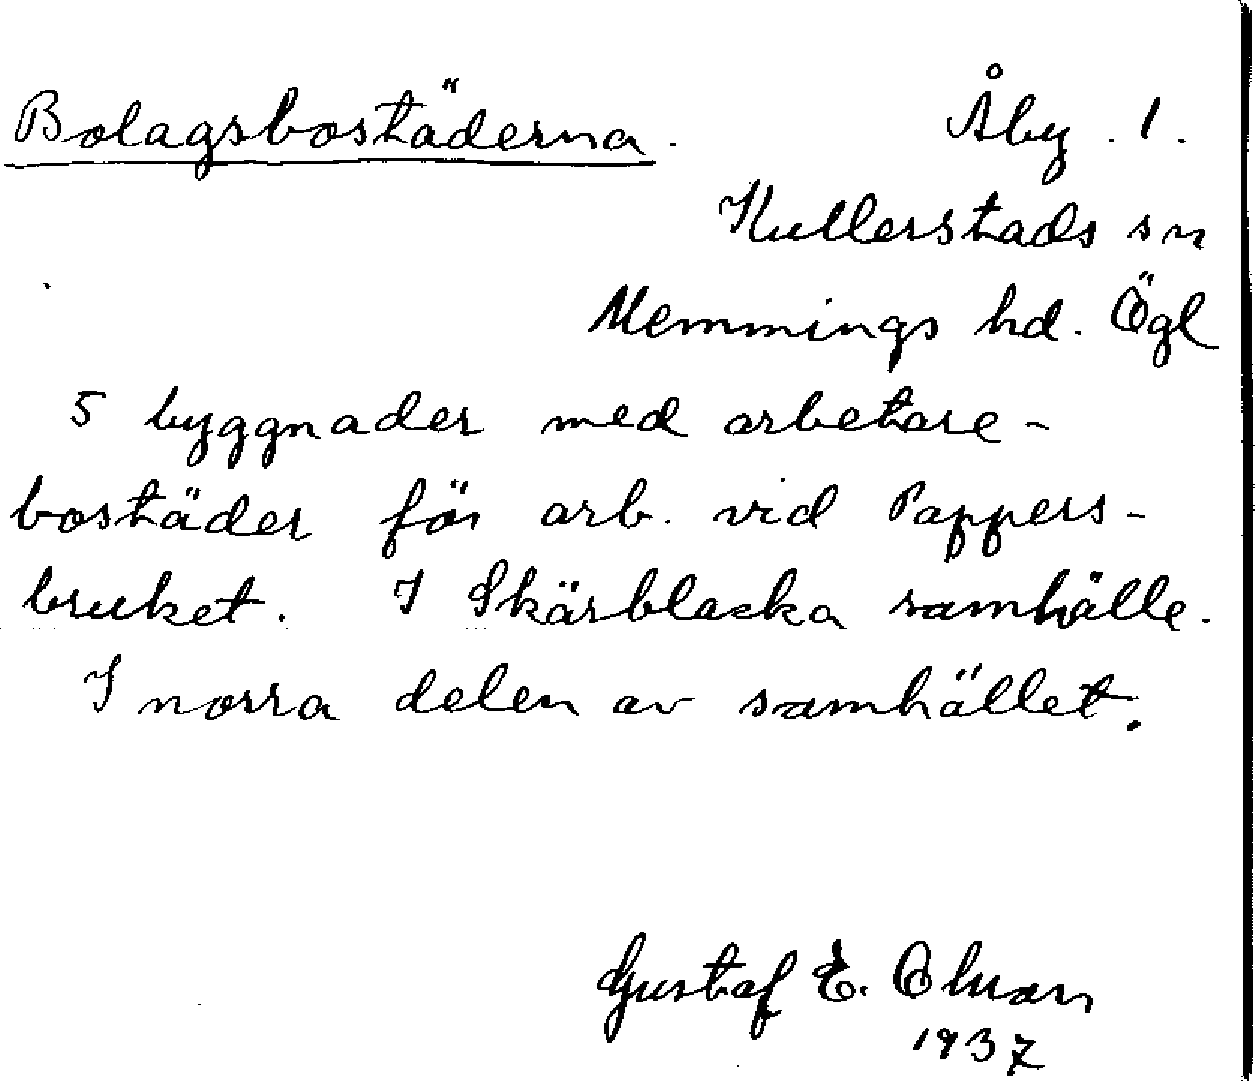 Bolagsbostäderna. Åby. 1.
Kullerstads sn
Memmings hd. Ögl
5 byggnader med arbetare-
bostäder för arb. vid Pappers-
bruket. I Skärblacka samhälle.
I norra delen av samhället.
Gustaf E.
1937